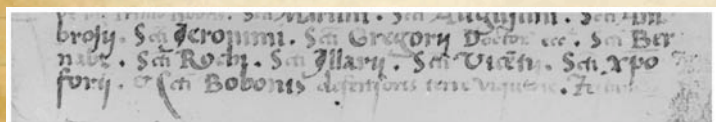 Scti Martini . Scti Augustini . Scti Am
brosij . Scti Jeronimi . Scti Gregorij Doctor ecc̄ . Scti Ber
nabe . Scti Rochi . Scti Jllarij . Scti Vicẽtij . Scti Xpo
forij . & Scti Bobonis defensoris terre